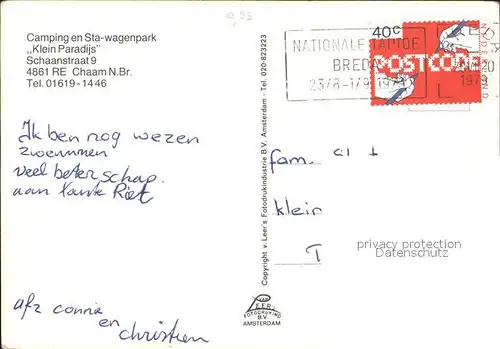 9,95
Camping en Sta-wagenpark
„Klein Paradijs"
Schaanstraat 9
4861 RE Chaam N.Br.
Tel. 01619-1446
NATIONALE TAPTOE
BREDA
23/8-1/9 1979
40c
POSTCODE
NEDERLAND
1979
Ik ben nog wezen
zwemmen
veel beterschap
aan tante Riet
afz connie
en
christien
Copyright v. Leer's Fotodrukindustrie B.V. Amsterdam - Tel. 020-823223
fam.
klein
T
privacy protection
Datenschutz
VAN
LEER'S
FOTODRUKIND
B.V.
AMSTERDAM